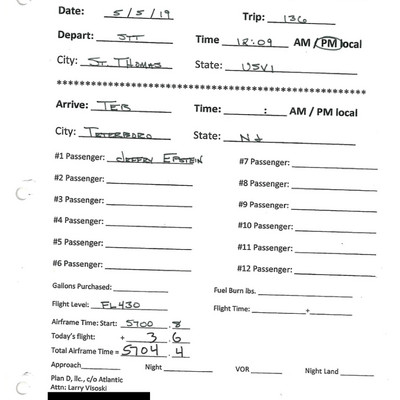 Date: 5/5/19 Trip: 136
Depart: STT Time 12:09 AM / PM local
City: ST. THOMAS State: USVI
**************************************************
Arrive: TEB Time: : AM / PM local
City: TETERBORO State: NJ
#1 Passenger: JEFFREY EPSTEIN #7 Passenger:
#2 Passenger: #8 Passenger:
#3 Passenger: #9 Passenger:
#4 Passenger: #10 Passenger:
#5 Passenger: #11 Passenger:
#6 Passenger: #12 Passenger:
Gallons Purchased: Fuel Burn lbs.
Flight Level: FL430 Flight Time: +
Airframe Time: Start: 5700 .8
Today's flight: + 3 .6
Total Airframe Time = 5704 .4
Approach Night VOR Night Land
Plan D, llc, c/o Atlantic
Attn: Larry Visoski